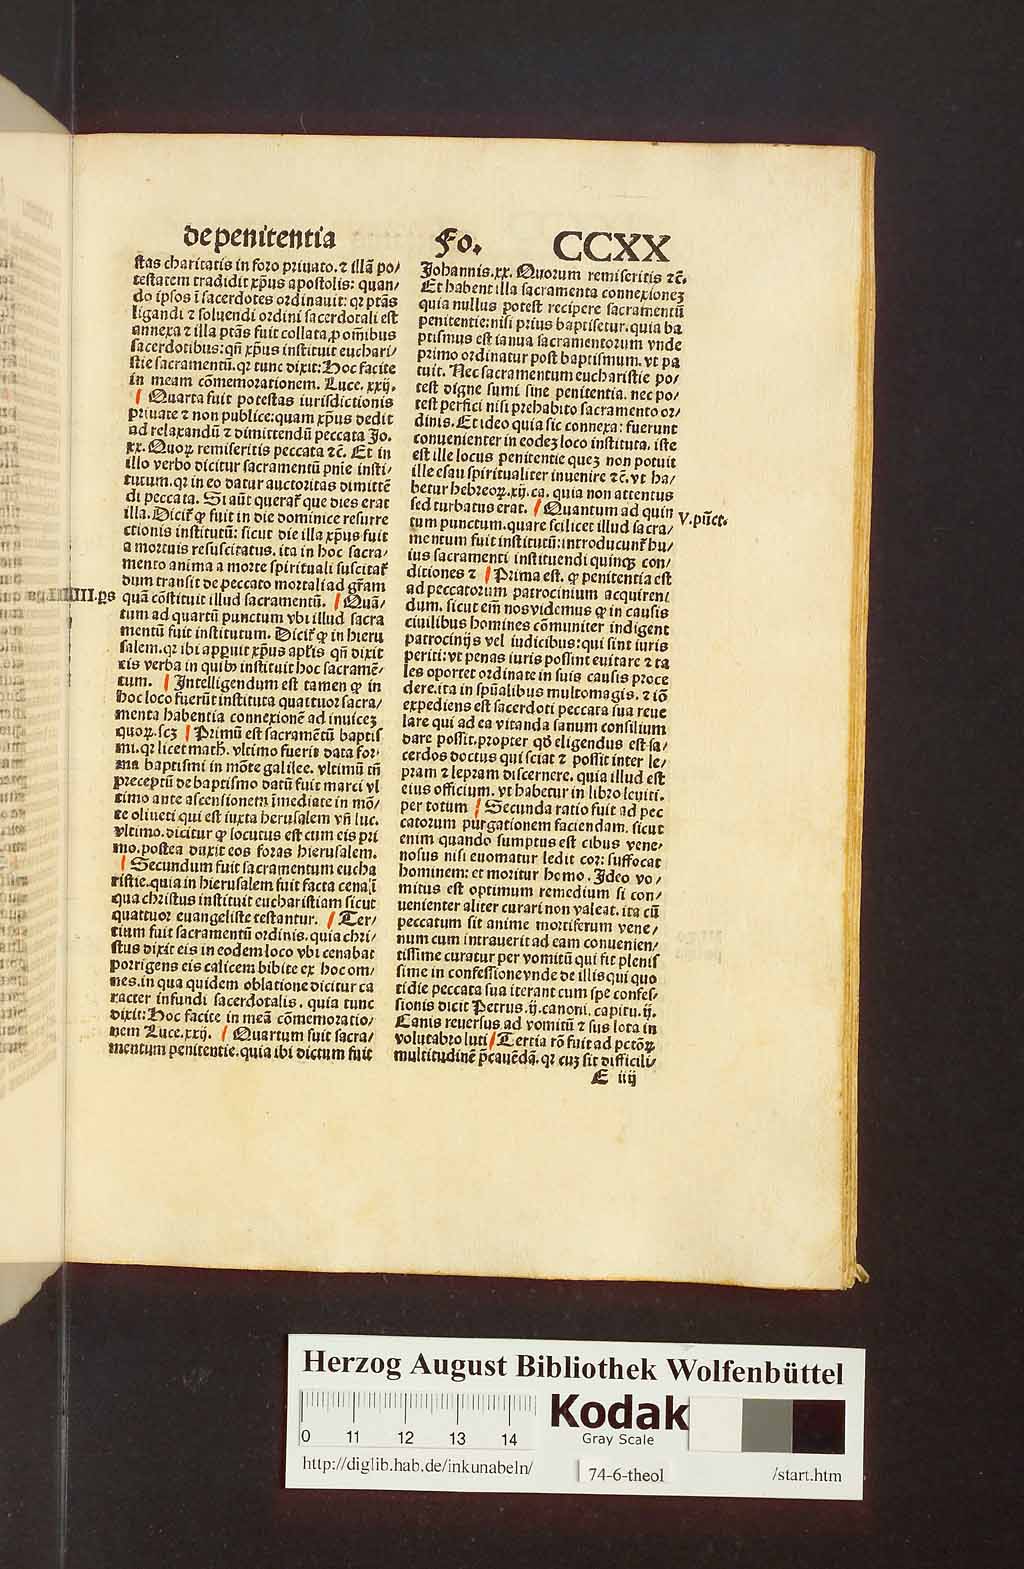 de penitentia Fo. CCXX
stas charitatis in foro priuato. ⁊ illã po/
testatem tradidit xp̃us apostolis: quan/
do ipsos ĩ sacerdotes ordinauit: qꝛ ptãs
ligandi ⁊ soluendi ordini sacerdotali est
annexa ⁊ illa ptãs fuit collata ꝓ om̃ibus
sacerdotibus: qñ xp̃us instituit euchari/
stie sacramentũ. qꝛ tunc dixit: Hoc facite
in meam cõmemorationem. Luce. xxij.
Quarta fuit potestas iurisdictionis
priuate ⁊ non publice: quam xp̃us dedit
ad relaxandũ ⁊ dimittendũ peccata Jo.
xx. Quoꝝ remiseritis peccata ⁊c̃. Et in
illo verbo dicitur sacramentũ pnie insti/
tutum. qꝛ in eo datur auctoritas dimittẽ
di peccata. Si aũt querat̃ que dies erat
illa. Dicit̃ ꝙ fuit in die dominice resurre
ctionis institutũ: sicut die illa xp̃us fuit
a mortuis resuscitatus. ita in hoc sacra/
mento anima a morte spirituali suscitat̃
dum transit de peccato mortali ad gr̃am
IIII.ps quã cõstituit illud sacramentũ. Quã/
tum ad quartũ punctum vbi illud sacra
mentũ fuit institutum. Dicit̃ ꝙ in hieru
salem. qꝛ ibi apparuit xp̃us aplis qñ dixit
eis verba in quibꝰ instituit hoc sacramẽ/
tum. Intelligendum est tamen ꝙ in
hoc loco fuerũt instituta quattuor sacra/
menta habentia connexionẽ ad inuicez
quoꝝ. scz Primũ est sacramẽtũ baptis
mi. qꝛ licet math. vltimo fuerit data for/
ma baptismi in mõte galilee. vltimũ tñ
preceptũ de baptismo datũ fuit marci vl
timo ante ascensionem ĩmediate in mõ/
te oliueti qui est iuxta herusalem vñ luc.
vltimo. dicitur ꝙ locutus est cum eis pri
mo. postea duxit eos foras hierusalem.
Secundum fuit sacramentum eucha
ristie. quia in hierusalem fuit facta cena ĩ
qua christus instituit eucharistiam sicut
quattuor euangeliste testantur. Ter/
tium fuit sacramentũ ordinis. quia chri/
stus dixit eis in eodem loco vbi cenabat
porrigens eis calicem bibite ex hoc om/
nes. in qua quidem oblatione dicitur ca
racter infundi sacerdotalis. quia tunc
dixit: Hoc facite in meã cõmemoratio/
nem Luce. xxij. Quartum fuit sacra/
mentum penitentie. quia ibi dictum fuit
Johannis. xx. Quorum remiseritis ⁊c̃.
Et habent illa sacramenta connexionez
quia nullus potest recipere sacramentũ
penitentie: nisi prius baptisetur. quia ba
ptismus est ianua sacramentorum vnde
primo ordinatur post baptismum. vt pa
tuit. Nec sacramentum eucharistie po/
test digne sumi sine penitentia. nec po/
test perfici nisi prehabito sacramento or/
dinis. Et ideo quia sic connexa: fuerunt
conuenienter in eodez loco instituta. iste
est ille locus penitentie quez non potuit
ille esau spiritualiter inuenire ⁊c̃. vt ha/
betur hebreoꝝ. xij. ca. quia non attentus
sed turbatus erat. Quantum ad quin V. pũct.
tum punctum. quare scilicet illud sacra/
mentum fuit institutũ: introducunt̃ hu/
ius sacramenti instituendi quinqꝫ con/
ditiones ⁊ Prima est. ꝙ penitentia est
ad peccatorum patrocinium acquiren/
dum. sicut em̃ nos videmus ꝙ in causis
ciuilibus homines cõmuniter indigent
patrocinijs vel iudicibus: qui sint iuris
periti: vt penas iuris possint euitare ⁊ ta
les oportet ordinate in suis causis proce
dere. ita in spũalibus multomagis. ⁊ iõ
expediens est sacerdoti peccata sua reue
lare qui ad ea vitanda sanum consilium
dare possit. propter qď eligendus est sa/
cerdos doctus qui sciat ⁊ possit inter le/
pram ⁊ lepram discernere. quia illud est
eius officium. vt habetur in libro leuiti.
per totum Secunda ratio fuit ad pec
catorum purgationem faciendam. sicut
enim quando sumptus est cibus vene/
nosus nisi euomatur ledit cor: suffocat
hominem: et moritur homo. Ideo vo/
mitus est optimum remedium si con/
uenienter aliter curari non valeat. ita cũ
peccatum sit anime mortiferum vene/
num cum intrauerit ad eam conuenien/
tissime curatur per vomitũ qui fit plenis
sime in confessione vnde de illis qui quo
tidie peccata sua iterant cum spe confes/
sionis dicit Petrus. ij. canoni. capitu. ij.
Canis reuersus ad vomitũ ⁊ sus lota in
volutabro luti Tertia rõ fuit ad pctõꝝ
multitudinẽ p̃cauẽdã. qꝛ cuz sit difficili/
E iiij
Herzog August Bibliothek Wolfenbüttel
Kodak
Gray Scale
0 11 12 13 14
http://diglib.hab.de/inkunabeln/ 74-6-theol /start.htm